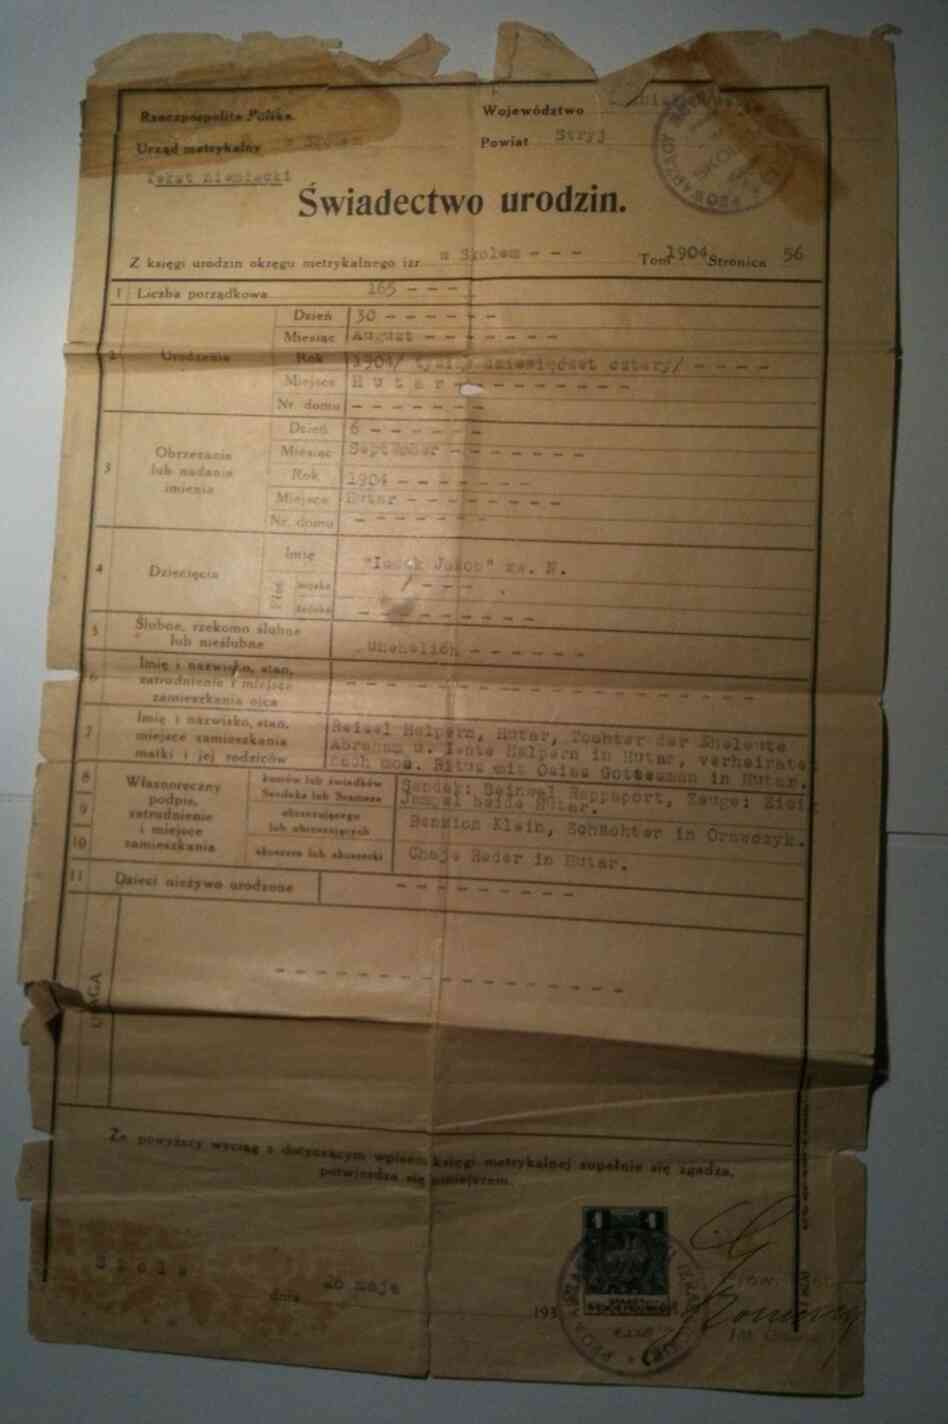 Rzeczpospolita Polska.
Województwo
Urząd metrykalny w Skolem
Powiat Stryj
Tekst niemiecki
Świadectwo urodzin.
Z księgi urodzin okręgu metrykalnego izr. w Skolem - - - Tom 1904 Stronica 56
1 Liczba porządkowa 165 - - -
2 Urodzenie
Dzień 30 - - - - - -
Miesiąc August - - - - - - -
Rok 1904/ dziewięćset cztery/ - - - -
Miejsce Hutar - - - - - - - - -
Nr. domu - - - - - - -
3 Obrzezanie lub nadanie imienia
Dzień 6 - - - - - -
Miesiąc September - - - - - - -
Rok 1904 - - - - - - -
Miejsce Hutar - - - - - - - -
Nr. domu - - - - - - -
4 Dziecięcia
Imię Jakob" zw. N.
Płeć
męska - - -
żeńska - - - - - - - -
5 Ślubne, rzekomo ślubne
lub nieślubne Unehelich - - - - - -
6 Imię i nazwisko, stan,
zatrudnienie i miejsce
zamieszkania ojca - - - - - - - - - - - - - - - - -
7 Imię i nazwisko, stan,
miejsce zamieszkania
matki i jej rodziców
Reisel Halpern, Hutar, Tochter der Eheleute
Abraham u. Halpern in Hutar, verheiratet
nach mos. Ritus mit Gottesman in Hutar.
Własnoręczny
podpis,
zatrudnienie
i miejsce
zamieszkania
8 kumów lub świadków
Sandeka lub
Sandek: Beinwel Rappaport, Zeuge:
beide Hutar.
9 obrzezującego
lub obrzezujących
Benzion Klein, Schächter in Orawczyk.
10 akuszera lub akuszerki
Chaje Reder in Hutar.
11 Dzieci nieżywo urodzone - - - - - - - - -
UWAGA
- - - - - - - - - - - - - - - - -
Że powyższy wyciąg z dotyczącym wpisem księgi metrykalnej zupełnie się zgadza,
potwierdza się niniejszem.
Skole
dnia 20 maja 193
1 1